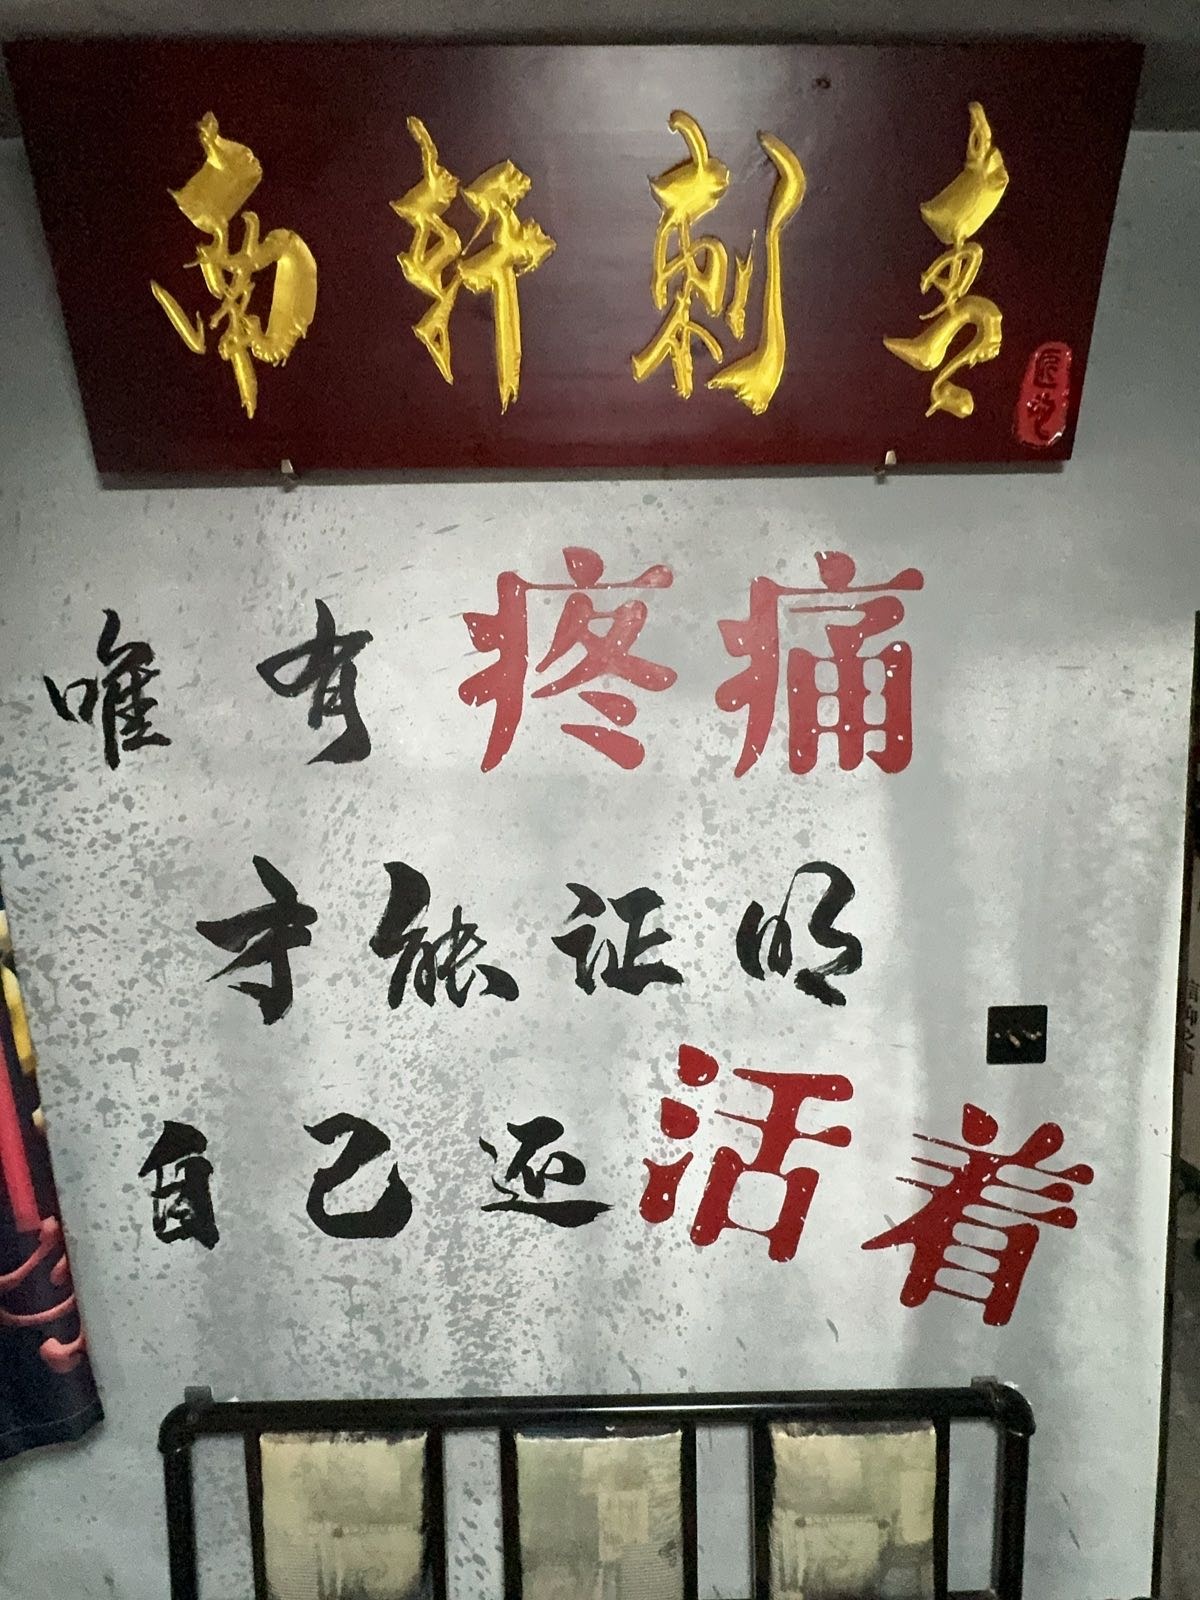 南轩刺青
唯有疼痛
才能证明
自己还活着